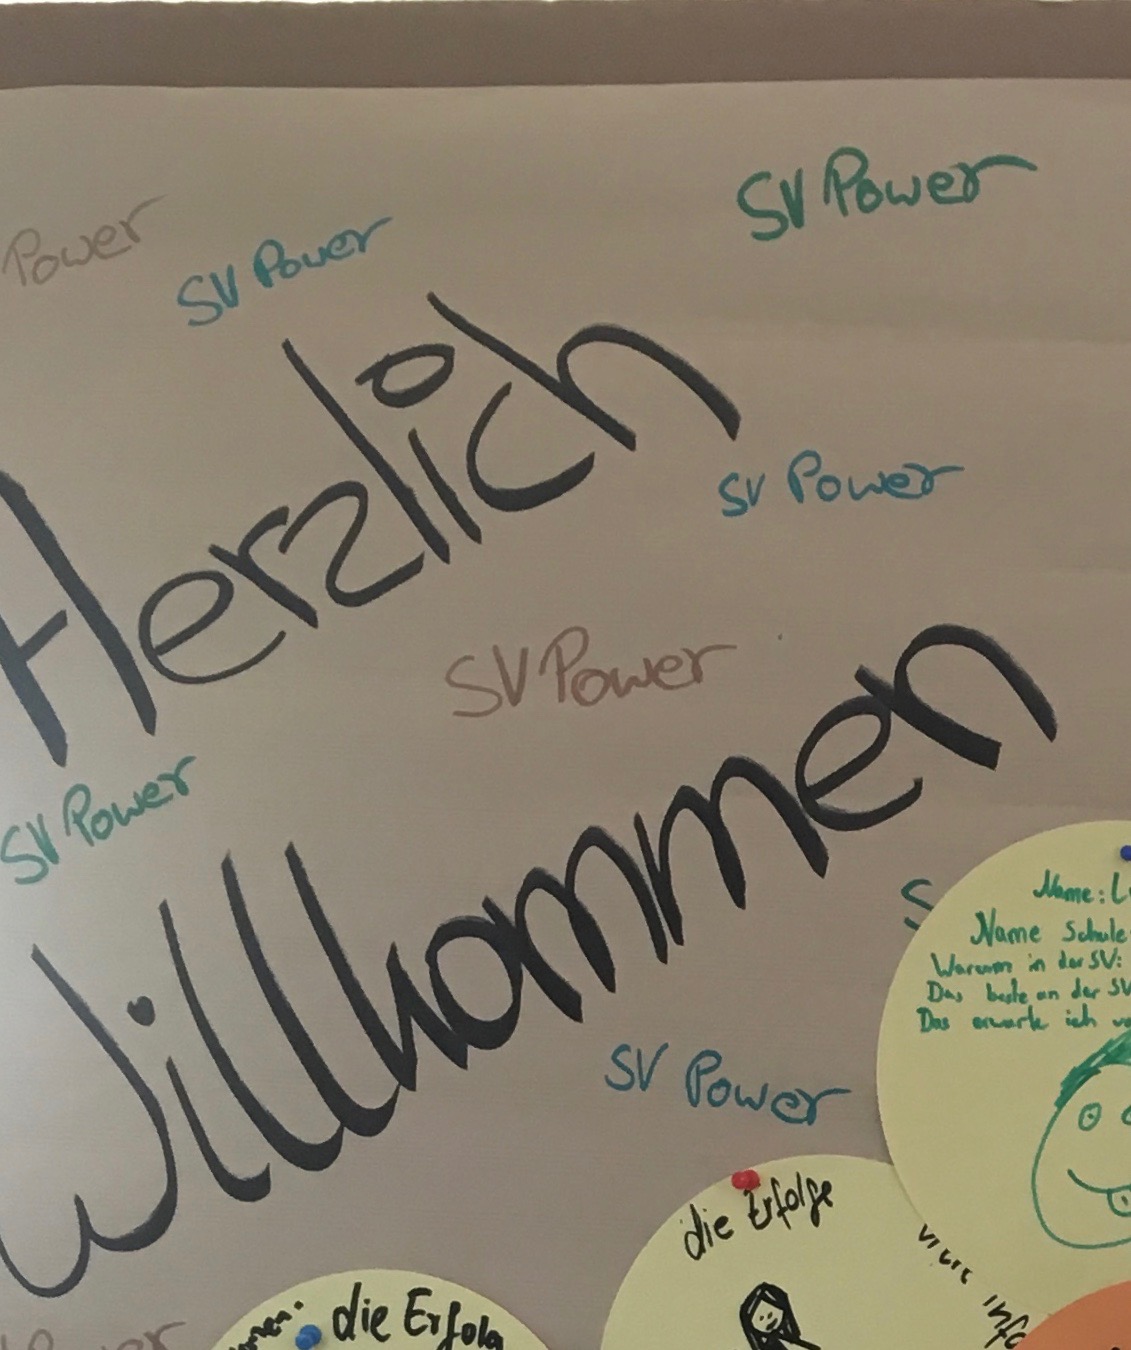 SV Power
Power
SV Power
Herzlich
SV Power
SV Power
SV Power
Willkommen
Name:
Name Schule
Warum in der SV:
Das beste an der SV
Das erwarte ich
SV Power
die Erfolge
viele Info
die Erfolg
Power